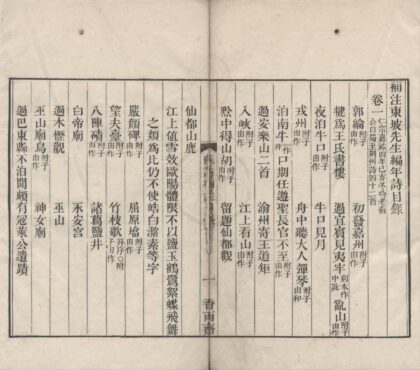 補注東坡先生編年詩目錄
卷一 仁宗嘉祐四年己亥冬侍老蘇公自蜀至荊州詩四十二首
郭綸 附子由作 初發嘉州 附子由作
犍爲王氏書樓 過宜賓見夷牢亂山 附子由作
夜泊牛口 附子由作 牛口見月
戎州 附子由作 舟中聽大人彈琴 附子由和
泊南牛 一作井 口期任遵聖長官不至 附子由作
過安樂山二首 渝州寄王道矩
入峽 附子由作 江上看山 附子由作
黔中得山胡 附子由作 留題仙都觀
一 香雨齋
仙都山鹿
江上値雪效歐陽體限不以鹽玉鶴鷺絮蝶飛舞
之類爲比仍不使皓白潔素等字
嚴顏碑 附子由作 屈原塔 附子由作
望夫臺 附子由作 竹枝歌 并序○附子由作
八陣磧 附子由作 諸葛鹽井
白帝廟 永安宮
過木櫪觀 巫山
巫山廟烏 附子由作 神女廟
過巴東縣不泊聞頗有寇萊公遺蹟